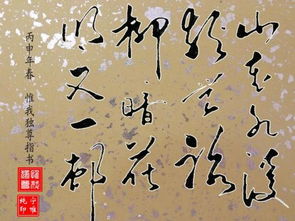 山重水復
疑无路
柳暗花
明又一村
丙申年春 惟我独尊指书